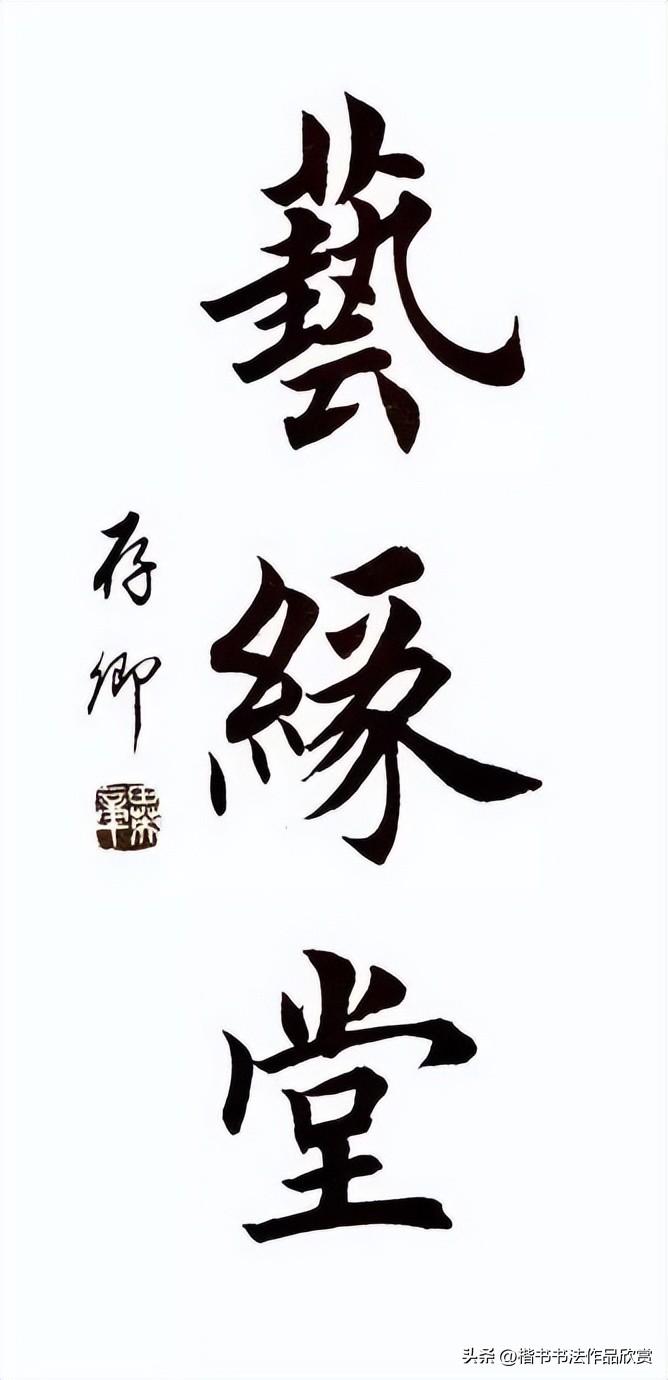 藝緣堂
存卿
头条 @楷书书法作品欣赏